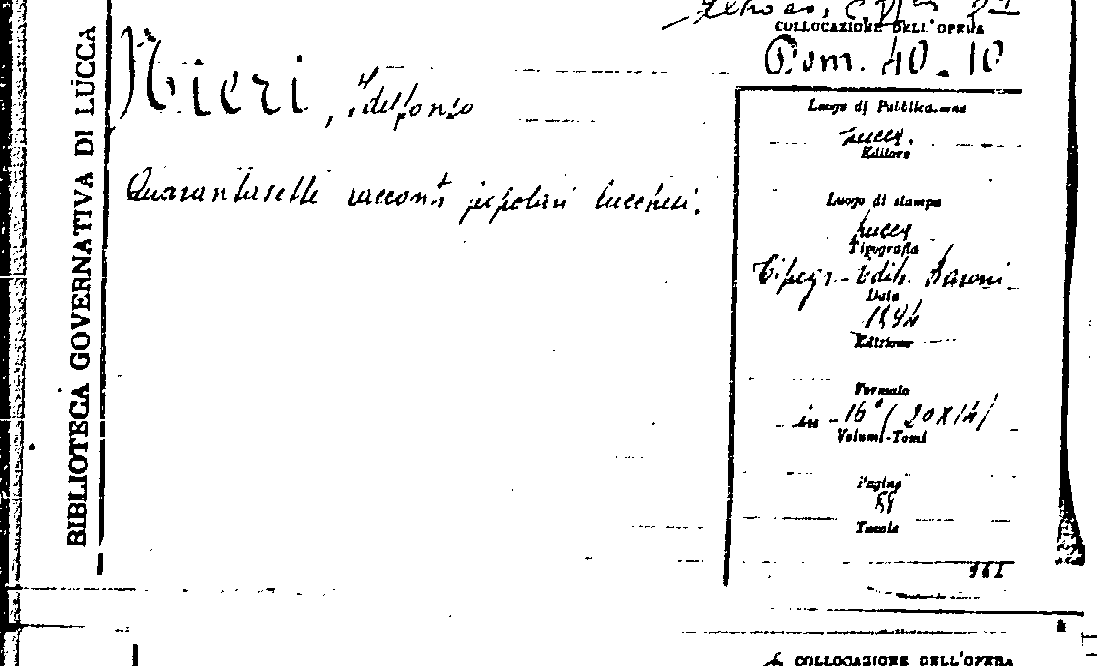 BIBLIOTECA GOVERNATIVA DI LUCCA
COLLOCAZIONE DELL'OPERA
Pom. 40-10
Nieri, Idelfonso
Quarantasette racconti popolari lucchesi.
Luogo di Pubblicazione
Lucca.
Editore
Luogo di stampa
Lucca
Tipografia
Tipogr. Edit. Baroni
Data
Edizione
Formato
in-16° (20X14)
Volumi-Tomi
Pagine
Tavole
COLLOCAZIONE DELL'OPERA